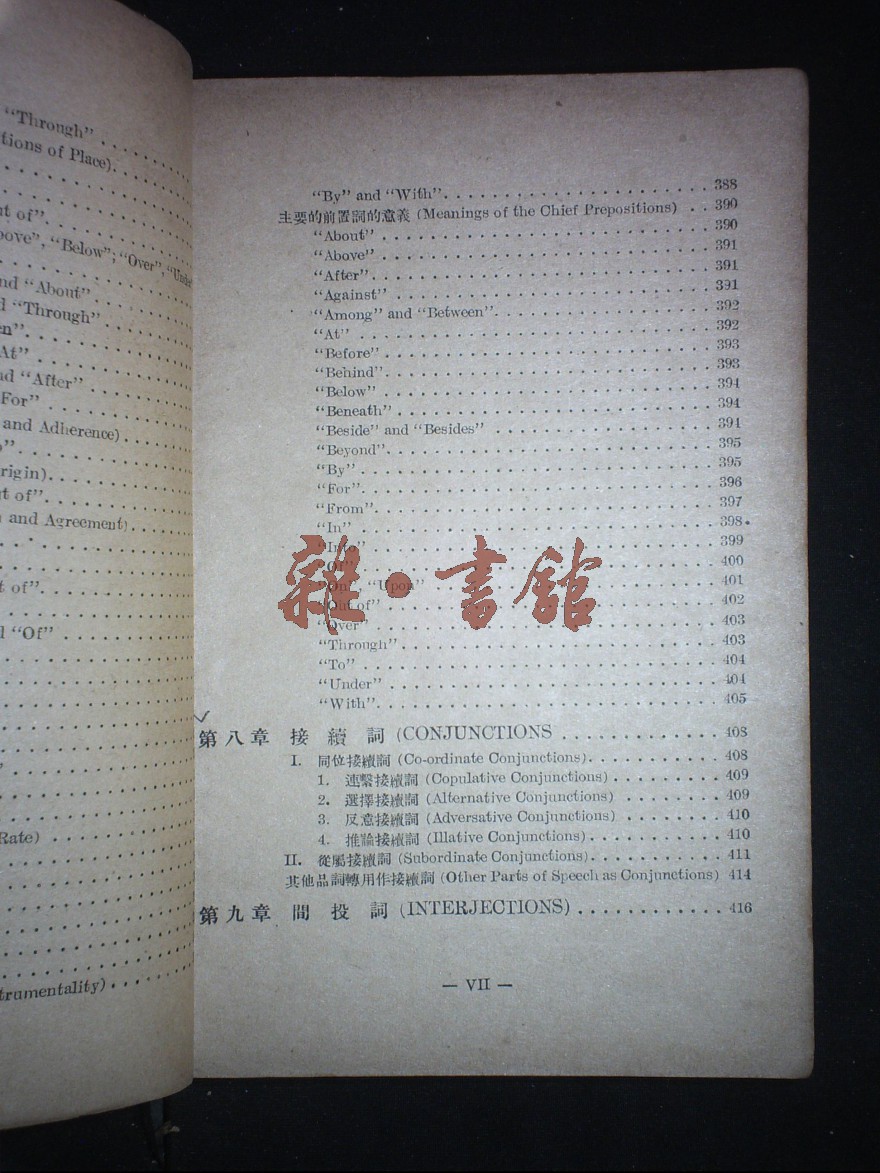 "Through" . . . . . . . .
tions of Place). . . . . . .
"Below"; "Over"
"About" . . . . . . . .
"Through" . . . . . . . .
"After" . . . . . . . .
For" . . . . . . . .
and Adherence) . . . . . . .
rigin). . . . . . . .
of". . . . . . . .
and Agreement). . . . . . .
of". . . . . . . .
"Of" . . . . . . . .
Rate) . . . . . . . .
trumentality) . . . . . . .
"By" and "With". . . . . . . . 388
主要的前置詞的意義 (Meanings of the Chief Prepositions) . . 390
"About" . . . . . . . . 390
"Above" . . . . . . . . 391
"After". . . . . . . . 391
"Against" . . . . . . . . 391
"Among" and "Between". . . . . . . . 392
"At" . . . . . . . . 392
"Before" . . . . . . . . 393
"Behind" . . . . . . . . 393
"Below" . . . . . . . . 394
"Beneath" . . . . . . . . 394
"Beside" and "Besides" . . . . . . . . 394
"Beyond". . . . . . . . 395
"By" . . . . . . . . 395
"For". . . . . . . . 396
"From". . . . . . . . 397
"In" . . . . . . . . 398
"Into" . . . . . . . . 399
"Of" . . . . . . . . 400
"On" "Upon" . . . . . . . . 401
"Out of" . . . . . . . . 402
"Over" . . . . . . . . 403
"Through" . . . . . . . . 403
"To" . . . . . . . . 404
"Under" . . . . . . . . 404
"With". . . . . . . . 405
第八章 接續詞 (CONJUNCTIONS . . . . . . . . 408
I. 同位接續詞 (Co-ordinate Conjunctions) . . . . . . . . 408
1. 連繫接續詞 (Copulative Conjunctions) . . . . . . . . 409
2. 選擇接續詞 (Alternative Conjunctions) . . . . . . . . 409
3. 反意接續詞 (Adversative Conjunctions) . . . . . . . . 410
4. 推論接續詞 (Illative Conjunctions) . . . . . . . . 410
II. 從屬接續詞 (Subordinate Conjunctions) . . . . . . . . 411
其他品詞轉用作接續詞 (Other Parts of Speech as Conjunctions) 414
第九章 間投詞 (INTERJECTIONS) . . . . . . . . 416
— VII —
雜·書館